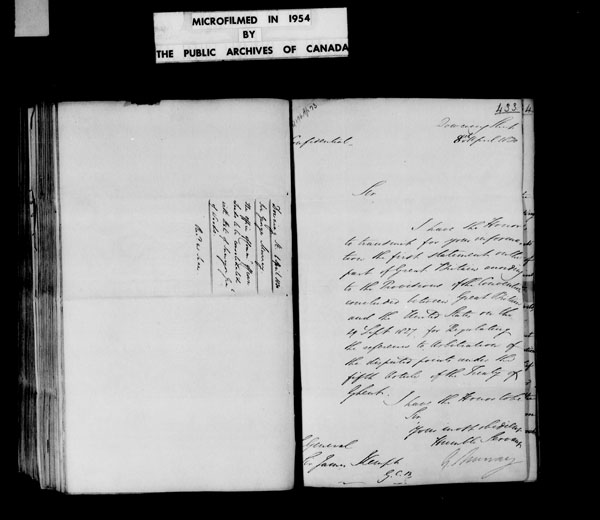 MICROFILMED IN 1954
BY
THE PUBLIC ARCHIVES OF CANADA
433
Downing Street
April 1830
Confidential
Sir
I have the Honor
to transmit for your informa-
tion the first statement on the
part of Great Britain according
to the Provisions of the Convention
concluded between Great Britain
and the United States on the
29 Sept 1827 for Regulating
the reference to Arbitration of
the disputed points under the
fifth Article of the Treaty of
Ghent.
I have the Honor to be
Sir
Your most obedient
Humble Servant
G Murray
General
Sir James Kempt
G.C.B.
Downing St April
Sir George Murray